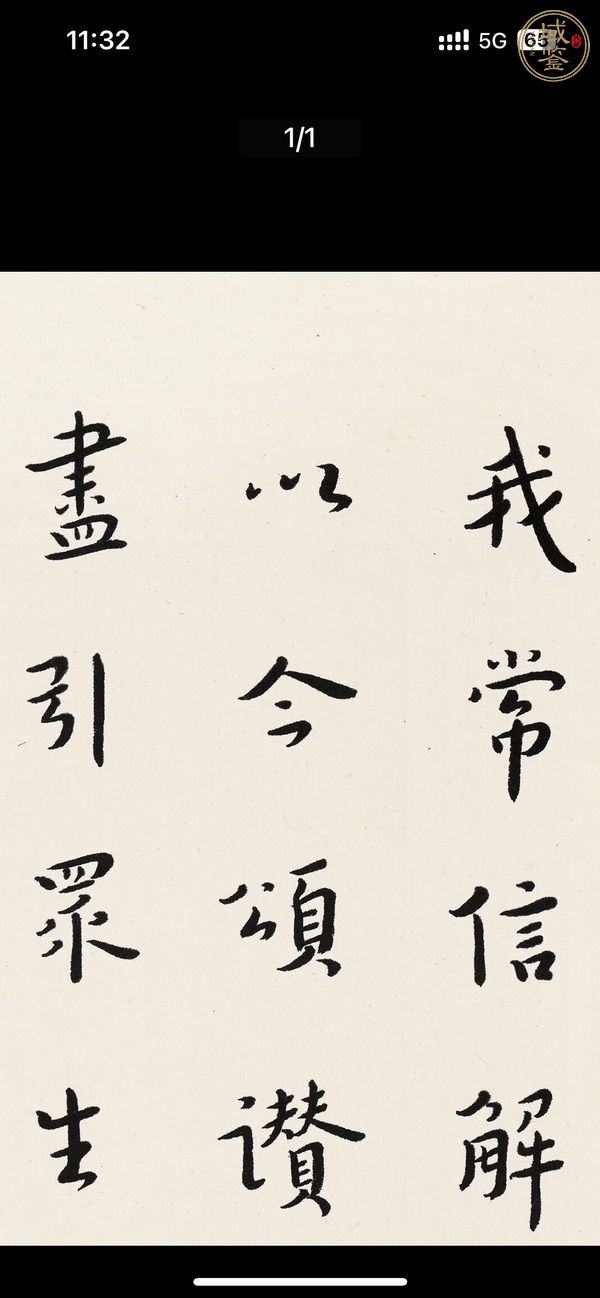 11:32
5G
65
1/1
我常信解
以今頌讚
盡引眾生